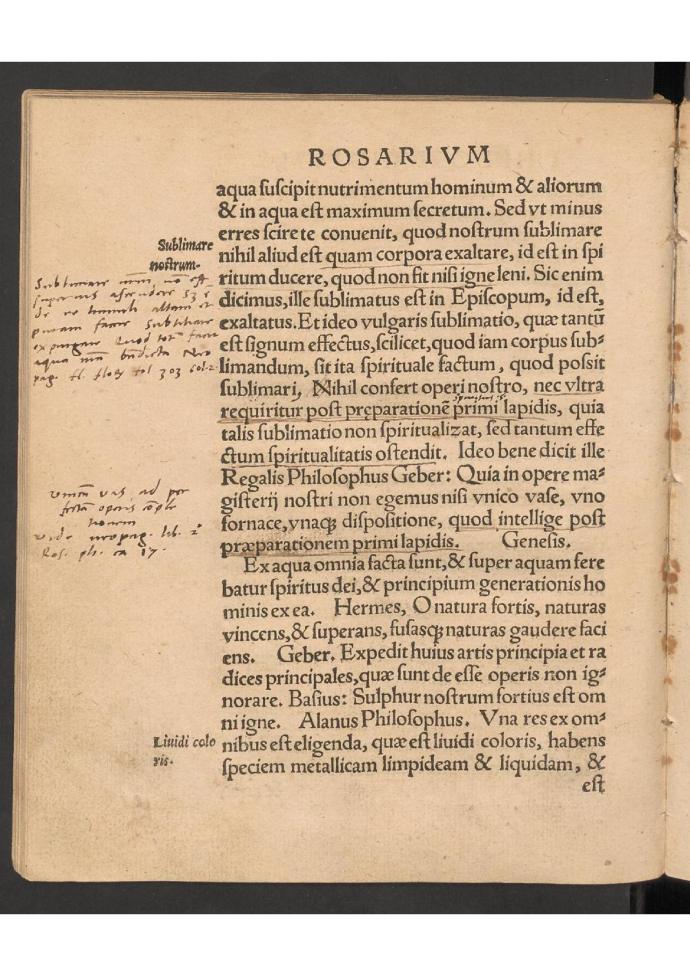 ROSARIVM
aqua ſuſcipit nutrimentum hominum & aliorum
& in aqua eſt maximum ſecretum. Sed vt minus
erres ſcire te conuenit, quod noſtrum ſublimare
nihil aliud eſt quam corpora exaltare, id eſt in ſpi
ritum ducere, quod non fit niſi igne leni. Sic enim
dicimus, ille ſublimatus eſt in Epiſcopum, id eſt,
exaltatus. Et ideo vulgaris ſublimatio, quæ tantũ
eſt ſignum effectus, ſcilicet, quod iam corpus ſub⸗
limandum, ſit ita ſpirituale factum, quod poſsit
ſublimari, Nihil confert operi noſtro, nec vltra
requiritur poſt preparationẽ primi lapidis, quia
talis ſublimatio non ſpiritualizat, ſed tantum effe
ctum ſpiritualitatis oſtendit. Ideo bene dicit ille
Regalis Philoſophus Geber: Quia in opere ma⸗
giſterij noſtri non egemus niſi vnico vaſe, vno
fornace, vnaqꝫ diſpoſitione, quod intellige poſt
præparationem primi lapidis. Geneſis.
Ex aqua omnia facta ſunt, & ſuper aquam fere
batur ſpiritus dei, & principium generationis ho
minis ex ea. Hermes, O natura fortis, naturas
vincens, & ſuperans, ſuſasqꝫ naturas gaudere faci
ens. Geber. Expedit huius artis principia et ra
dices principales, quæ ſunt de eſſe operis non ig⸗
norare. Baſius: Sulphur noſtrum fortius eſt om
ni igne. Alanus Philoſophus. Vna res ex om⸗
nibus eſt eligenda, quæ eſt liuidi coloris, habens
ſpeciem metallicam limpideam & liquidam, &
eſt
Sublimare
noſtrum.
Sublimare
super
puram facere Subtiliare
expurgare
aqua
303
vnicum vas ad per
operis
vide lib. 2
Ros. ph. ca 17.
Liuidi colo
ris.